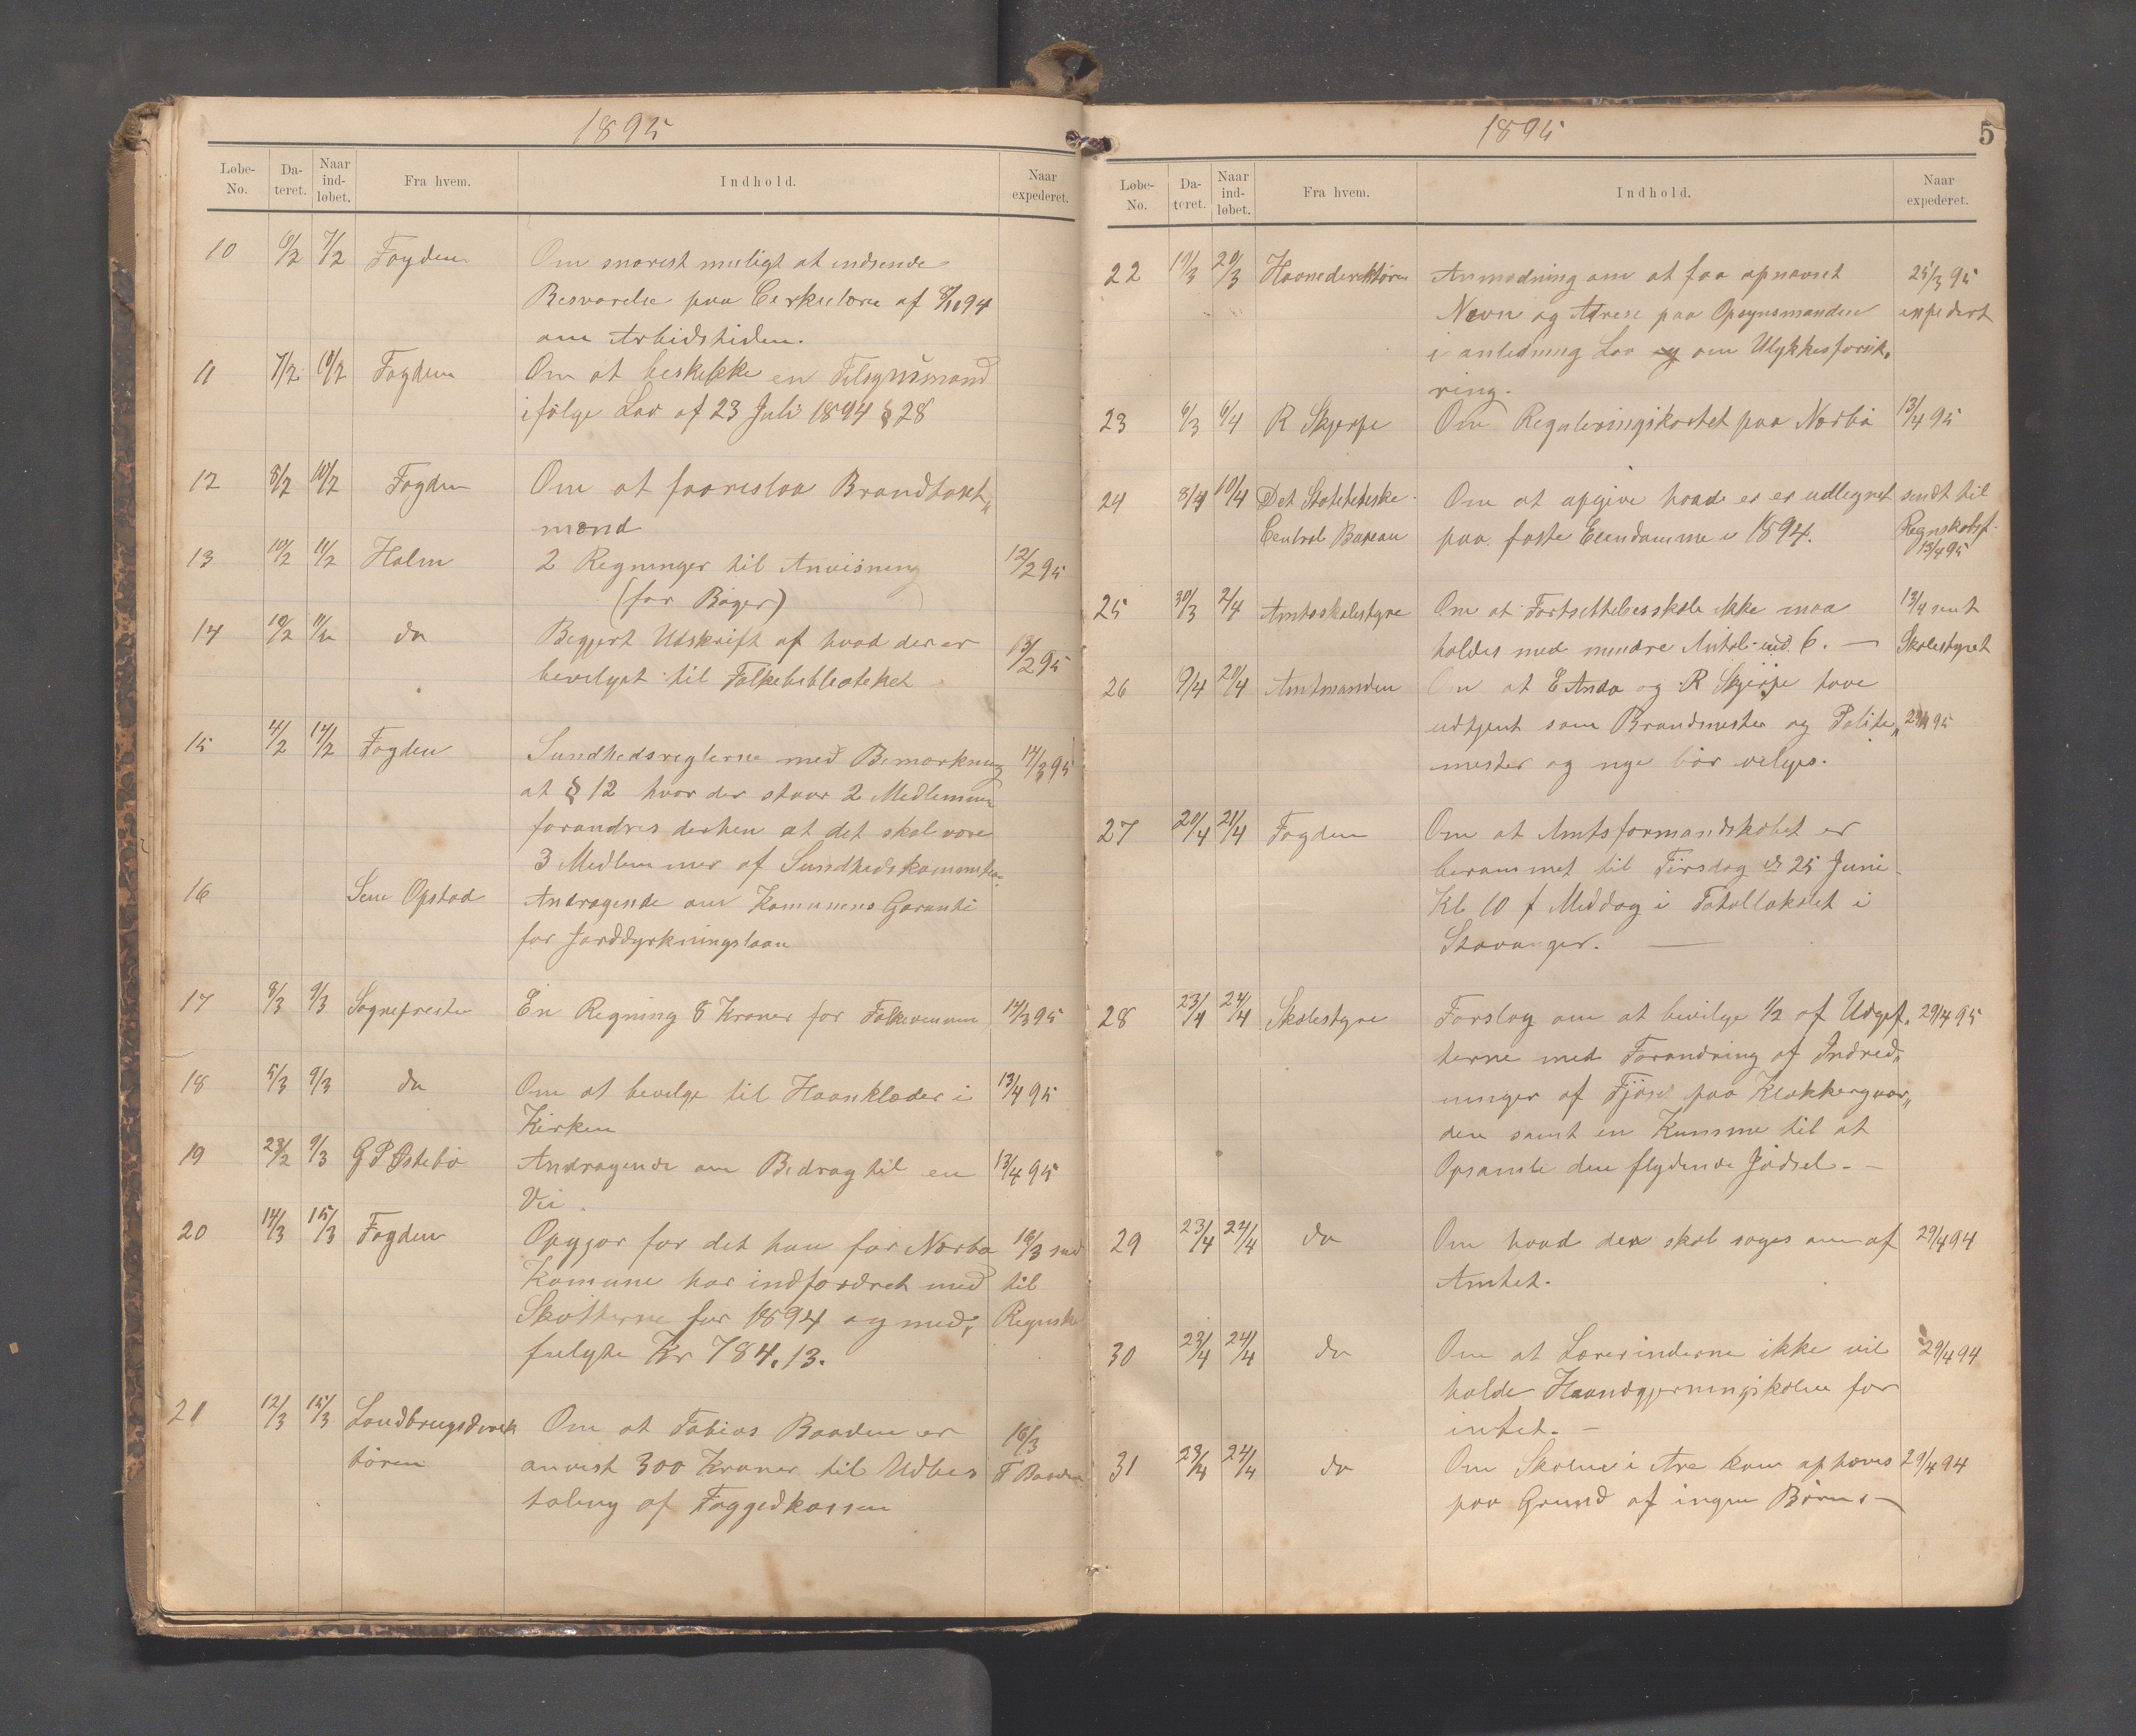 1895
Løbe-No. Dateret. Naar indløbet. Fra hvem. Indhold. Naar expederet.
10 6/2 7/2 Fogden Om snarest muligt at indsende
Besvarelse paa Cirkulære af 8/11 94
om Arbidstiden.
11 7/2 10/2 Fogden Om at beskikke en Tilsynsmand
ifølge Lov af 23 Juli 1894 § 28
12 8/2 10/2 Fogden Om at foreslaa Brandtakst„
mænd
13 10/2 11/2 Holm 2 Regninger til Anvisning 12/2 95
(for Bøger)
14 10/2 11/2 do Begjert Udskrift af hvad der er 13/2 95
bevilgat til Folkebiblioteket
15 4/2 14/2 Fogden Sundhedsreglerne med Bemærkning 14/3 95
at § 12 hvor der staar 2 Medlemmer
forandres derhen at det skal være
3 Medlemmer af Sundhedskommission
16 Opstad Andragende om Komunens Garanti
for Jorddyrkningslaan
17 8/3 9/3 Sognepresten En Regning 8 Kroner for Folkevennen 14/3 95
18 5/3 9/3 do Om at bevilge til Haanklæder i 13/4 95
Kirken
19 23/2 9/3 G P Østebø Andragende om Bidrag til en 13/4 95
Vei.
20 14/3 15/3 Fogden Opgjør for det han for Nærbø 16/3 send
Komune har indfordret med til
Skatterne for 1894 og med„ Regnsk
fulgte Kr 784.13.
21 12/3 15/3 Landbrugsdirek Om at Tobias Braaden er 16/3
tøren anvist 300 Kroner til Udbes T
taling af Foggedkassen
1895 5
Løbe-No. Dateret. Naar indløbet. Fra hvem. Indhold. Naar expederet.
22 19/3 20/3 Havnedirektøren Anmodning om at faa opnævnt 25/3 95
Navn og Adrese paa Opsynsmanden expedert
i anledning Lov og om Ulykkesforsik„
ring.
23 6/3 6/4 R Skjerpe Om Reguleringskartet paa Nærbø 13/4 95
24 8/4 10/4 Det Statistiske Om at opgive hvad er er udlignet sendt til
Central Bureau paa faste Eiendomme i 1894. Regnskabsf.
13/4 95
25 30/3 2/4 Amtsskolestyre Om at Fortsettelsesskole ikke maa 13/4 sent
holdes med mindre Antal end 6. — Skolestyret
26 9/4 20/4 Amtmanden Om at E Anda og R Skjerpe have
udtjent som Brandmester og Politi„ 29/4 95
mester og nye bør velges.
27 20/4 21/4 Fogden Om at Amtsformandskabet er
berammet til Tirsdag d 25 Juni
Kl 10 f Meddag i Totallokalet i
Stavanger. —
28 23/4 24/4 Skolestyre Forslag om at bevilge 1/2 af Udgif„ 29/4 95
terne med Forandring af Indred„
ninger af Fjøse paa Klokkergaar„
den samt en Kumme til at
Opsamle den flydende Jødsel. —
29 23/4 24/4 do Om hvad der skal søges om af 29/4 94
Amtet.
30 23/4 24/4 do Om at Lærerinderne ikke vil 29/4 94
holde Haandgjerningskolen for
intet. —
31 23/4 24/4 do Om Skolen i Are kan ophæves 29/4 94
paa Grund af ingen Børn. —